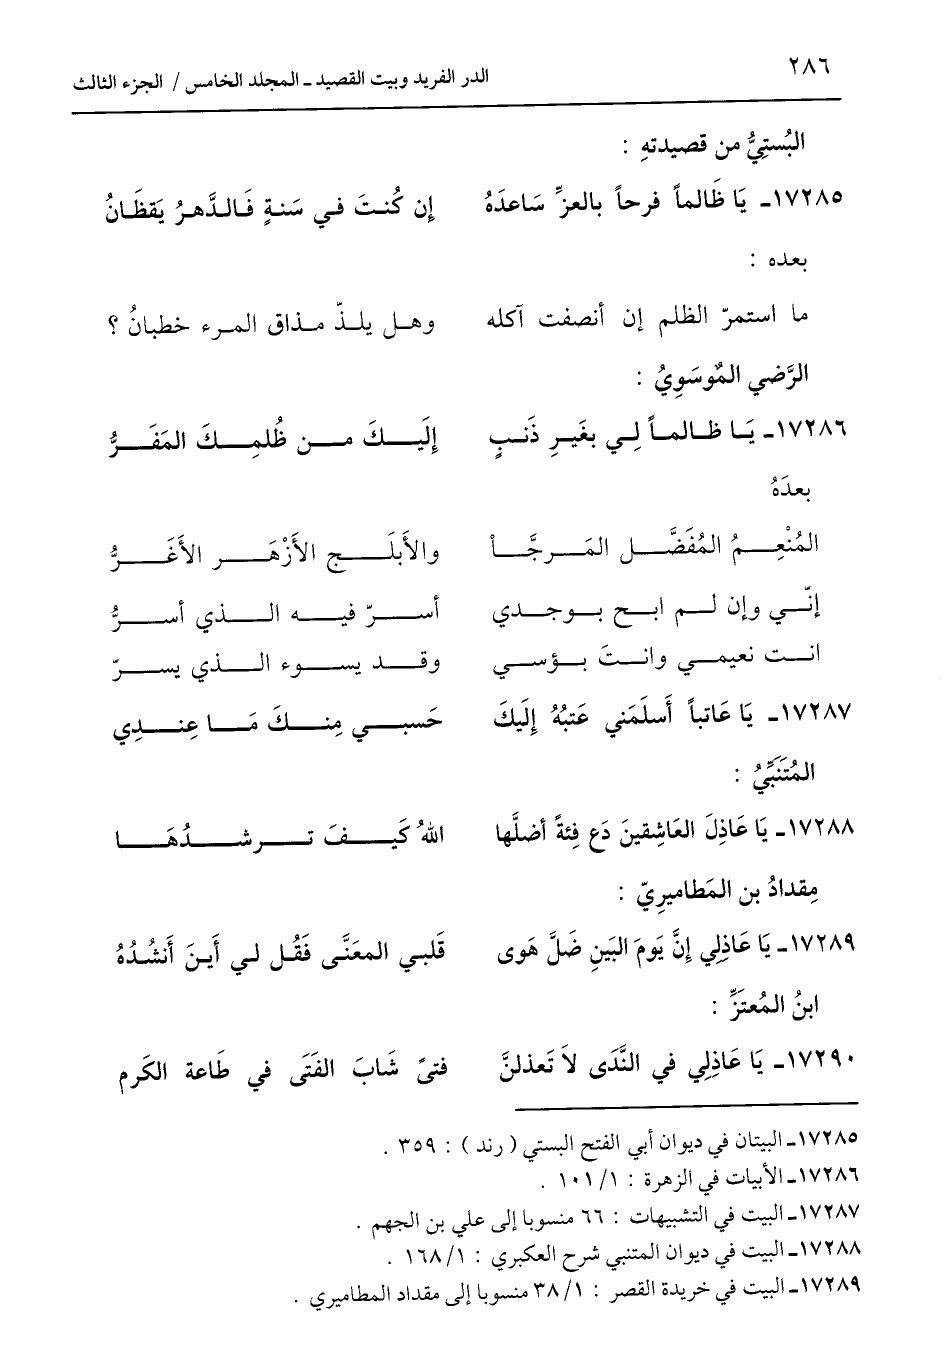 ٢٨٦
الدر الفريد وبيت القصيد ـ المجلد الخامس / الجزء الثالث
البُستِيُّ من قصيدتهِ :
١٧٢٨٥ـ يَا ظَالماً فرحاً بالعزِّ سَاعدَهُ إن كُنتَ في سَنةٍ فَالدَّهرُ يَقظَانُ
بعده :
ما استمرّ الظلم إن أنصفت آكله وهل يلذّ مذاق المرء خطبانُ ؟
الرَّضي المُوسَوِيُ :
١٧٢٨٦ـ يَا ظالماً لِي بغَيرِ ذَنبٍ إلَيكَ من ظُلمِكَ المَفَرُّ
بعدَهُ
المُنْعِمُ المُفَضَّل المَرجَّأ والأبلَج الأَزْهَر الأَغَرُّ
إنّي وإن لم ابح بوجدي أسرّ فيه الذي أسرُّ
انت نعيمي وانتَ بؤسي وقد يسوء الذي يسرّ
١٧٢٨٧ـ يَا عَاتباً أسلَمَني عَتبُهُ إلَيكَ حَسبي مِنكَ مَا عِندِي
المُتَنَبِّيُ :
١٧٢٨٨ـ يَا عَاذِلَ العَاشِقينَ دَع فِئةً أضلَّها اللهُ كَيفَ ترشدُهَا
مِقدادُ بن المَطاميرِيّ :
١٧٢٨٩ـ يَا عَاذِلِي إنَّ يَومَ البَينِ ضَلَّ هَوى قَلبي المعَنَّى فَقُل لي أَينَ أَنشُدُهُ
ابنُ المُعتَزِّ :
١٧٢٩٠ـ يَا عَاذِلِي في النَّدَى لاَ تَعذلنَّ فتىً شَابَ الفَتَى في طَاعة الكَرم
١٧٢٨٥ـ البيتان في ديوان أبي الفتح البستي ( رند ) : ٣٥٩ .
١٧٢٨٦ـ الأبيات في الزهرة : ١/ ١٠١ .
١٧٢٨٧ـ البيت في التشبيهات : ٦٦ منسوبا إلى علي بن الجهم .
١٧٢٨٨ـ البيت في ديوان المتنبي شرح العكبري : ١/ ١٦٨ .
١٧٢٨٩ـ البيت في خريدة القصر : ١/ ٣٨ منسوبا إلى مقداد المطاميري .